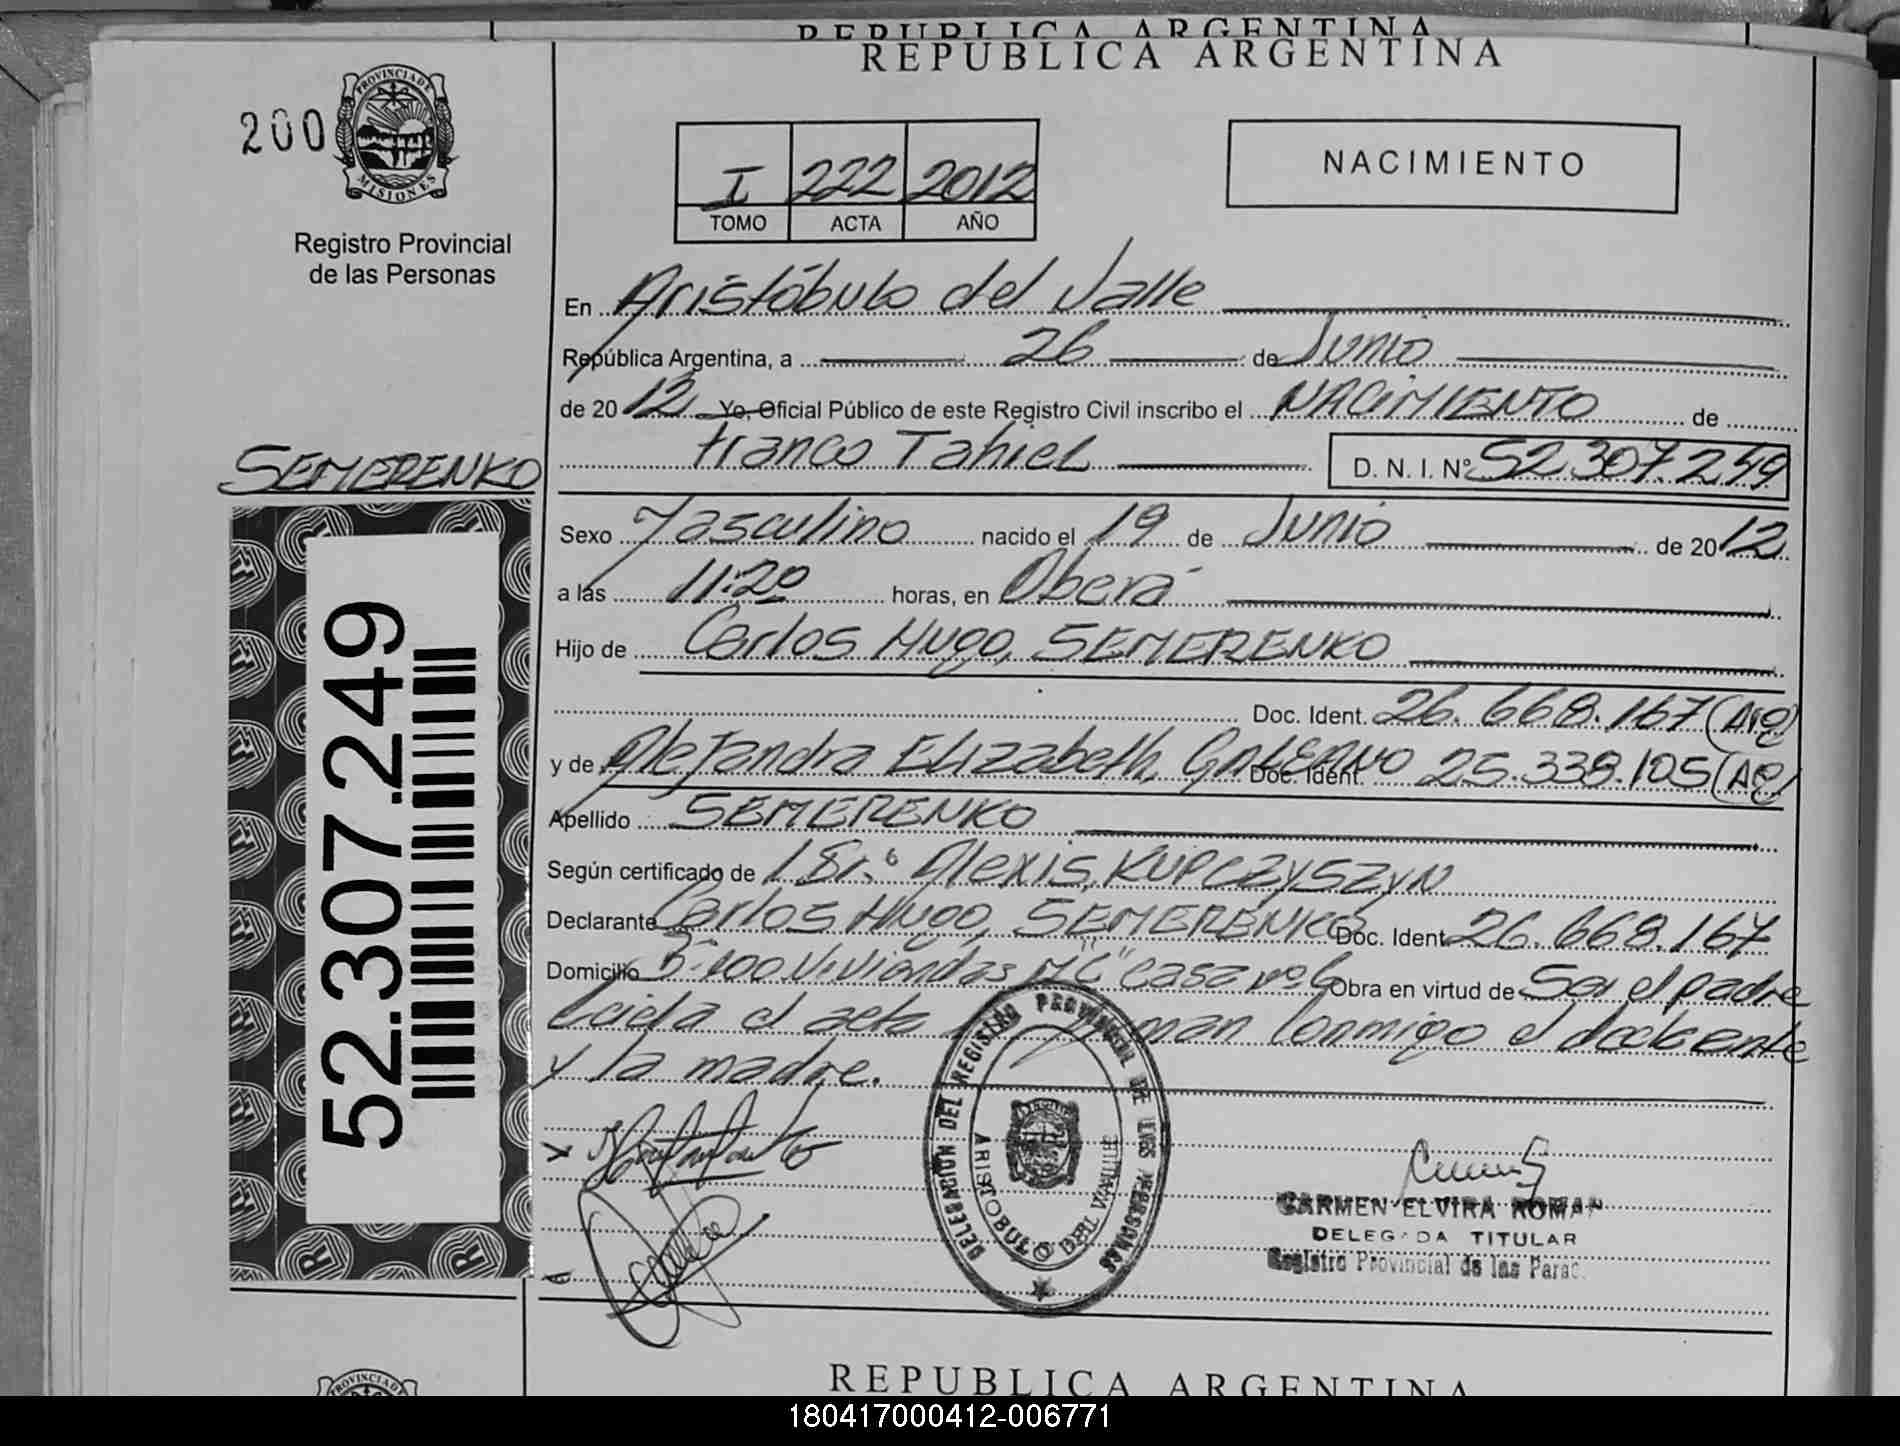 REPUBLICA ARGENTINA
REPUBLICA ARGENTINA
200
PROVINCIA DE
MISIONES
Registro Provincial
de las Personas
I 222 2012
TOMO ACTA AÑO
NACIMIENTO
En Aristóbulo del Valle
República Argentina, a 26 de Junio
de 2012 Yo, Oficial Público de este Registro Civil inscribo el NACIMIENTO de
Franco Tahiel D. N. I. Nº 52.307.249
SEMERENKO
52.307.249
Sexo Masculino nacido el 19 de Junio de 2012
a las 11:20 horas, en Oberá
Hijo de Carlos Hugo, SEMERENKO
Doc. Ident. 26.668.167 (Arg)
y de Alejandra Elizabeth, GALEANO Doc. Ident. 25.338.105 (Ag)
Apellido SEMERENKO
Según certificado de Alexis, KUPCZYSZYN
Declarante Carlos Hugo, SEMERENKO Doc. Ident. 26.668.167
Domicilio Bº 100 Viviendas Mz "C" casa nº 6 Obra en virtud de Ser el padre
Leída el acta firman conmigo el
y la madre.
DELEGACION DEL REGISTRO PROVINCIAL DE LAS PERSONAS
ARISTOBULO DEL VALLE
CARMEN ELVIRA ROMAN
DELEGADA TITULAR
Registro Provincial de las Persc.
REPUBLICA ARGENTINA
PROVINCIA DE
180417000412-006771